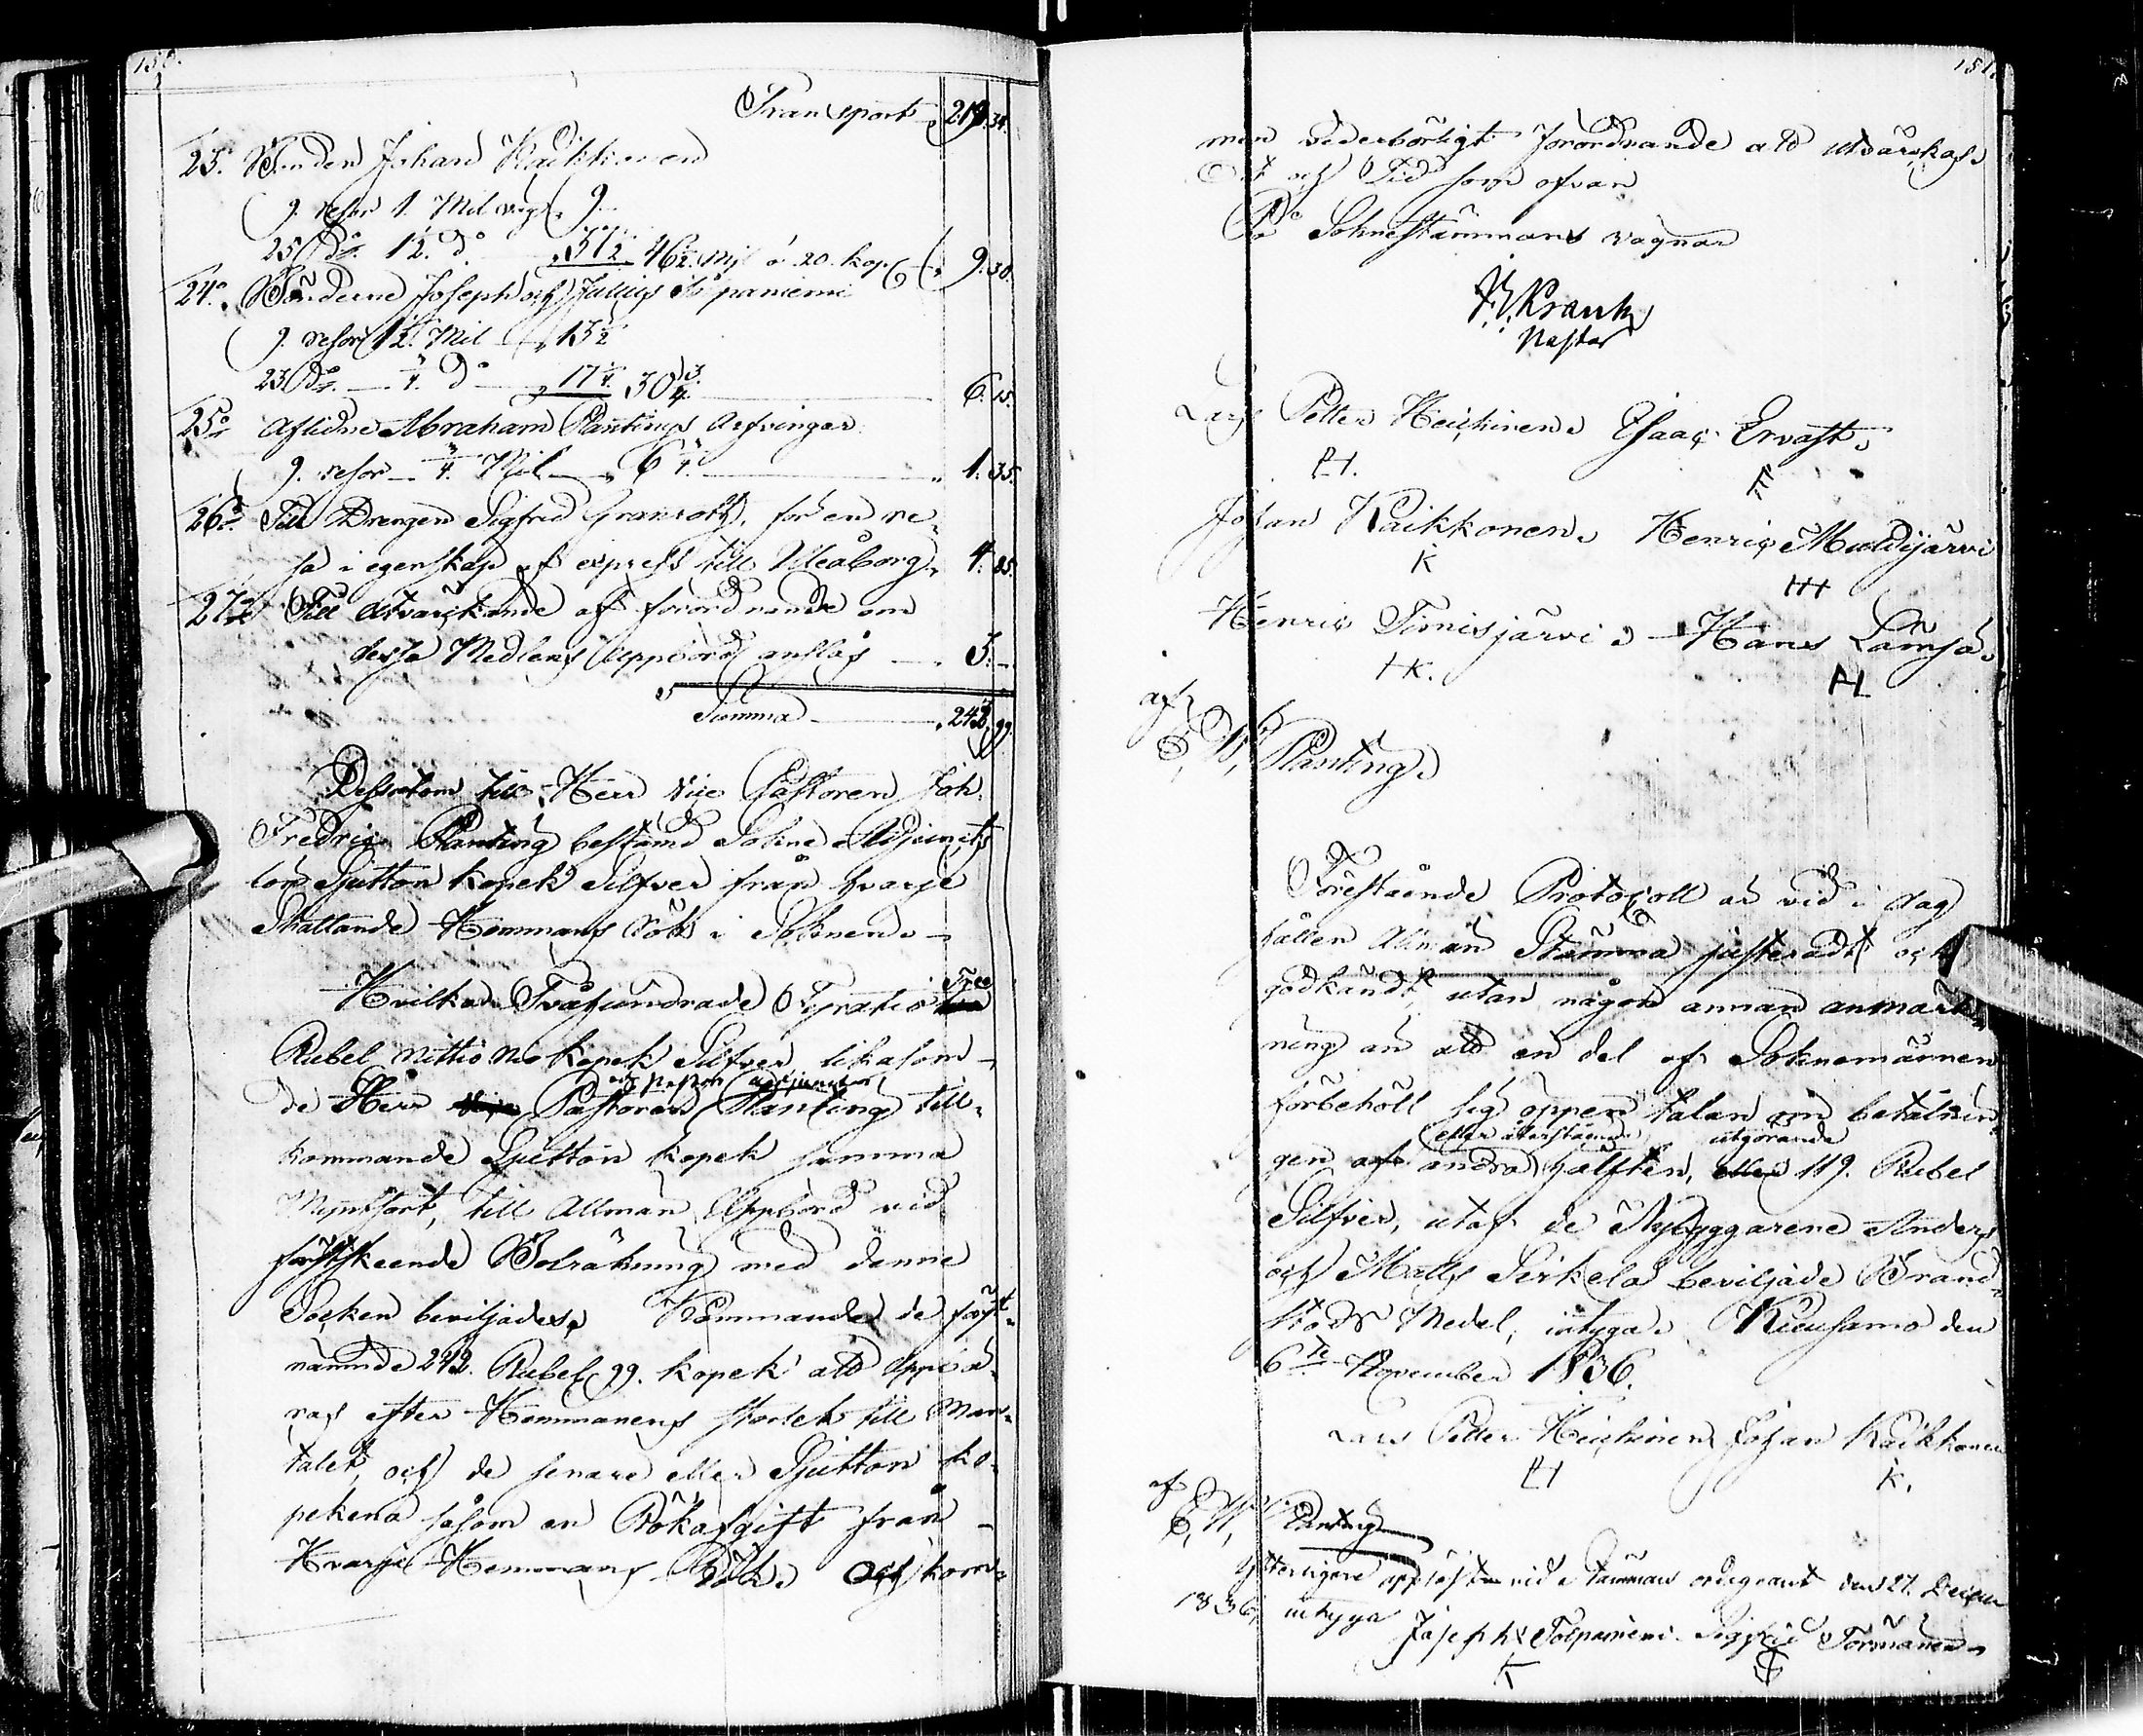 150.
Transport 219.34.
23. Bonden Johan Kaikkonen
9. resor 1. Mil väg 9.
25 do. 1½. do 37½ 46½ Mil á 20. kop. 9.30.
24o Bönderne Joseph och Julius
9. resor 1½ Mil 13½
23 do. ¾. do 17¼. 30¾. 6.15.
25o Aflidne Abraham Plantings Arfvingar
9. resor ¾. Mil 6¾. 1.35.
26o Till Drengen Sigfrid Granroth, för en re-
sa i egenskap af express till Uleåborg 4.85.
27o Till utvärkande af förordnande om
dessa Medlens Uppbörd anslås 3.-
Summa 242,99.
Dessutom till Herr Vice Pastoren Joh.
Fredric Planting bestämd Sokne Adjuncts
lön Sjutton kopek Silfver från hvarje
Skattande Hemmans Rök i Soknen.
Hvilka Tvåhundrade Fyratio Två
Rubel nittio nio kopek Silfver likasom
de Herr Pastoren Planting till-
kommande Sjutton kopek samma
Myntsort, till Allmän Uppbörd vid
först skeende Bolräkning med denne
Socken beviljades. Kommande de först-
nämnde 242. Rubel 99. kopek att uppbä-
ras efter Hemmanens storlek till Man-
talet, och de senare eller Sjutton ko-
pekena såsom en Rökafgift från
Hvarje Hemmans Rök. Och kom-
151.
men vederbörligt förordnande att utvärkas.
Ort och Tid som ofvan
På Soknestämmans vägnar
Krank
Pastor
Lars Petter Heickinen Esaac Ervast
PH.
E
Johan Kaikkonen, Henric Multijärvi
K
HH
Henric Timisjärvi Hans Lämsä
HK.
HL
af
E, W, Planting
Förestående Protocoll är vid i dag
hållen Allmän Stämma justeradt och
godkändt utan någon annan anmärk-
ning än att en del af Soknemännen
förbehöll sig öppen talan om betalnin-
eller återstående utgörande
gen af andra hälften, 119. Rubel
Silfver, utaf de Nybyggarene Anders
och Matts Sirkelä beviljade Brand-
stods Medel; intyga. Kuusamo den
6te November 1836.
Lars Petter Heickinen Johan Kaikkonen
PH
K.
af
E, W, Planting
Ytterligere uppläst vid Stämman ordagrant den 27. Decem
1836, intyga
Joseph Sigfrid Törmänen